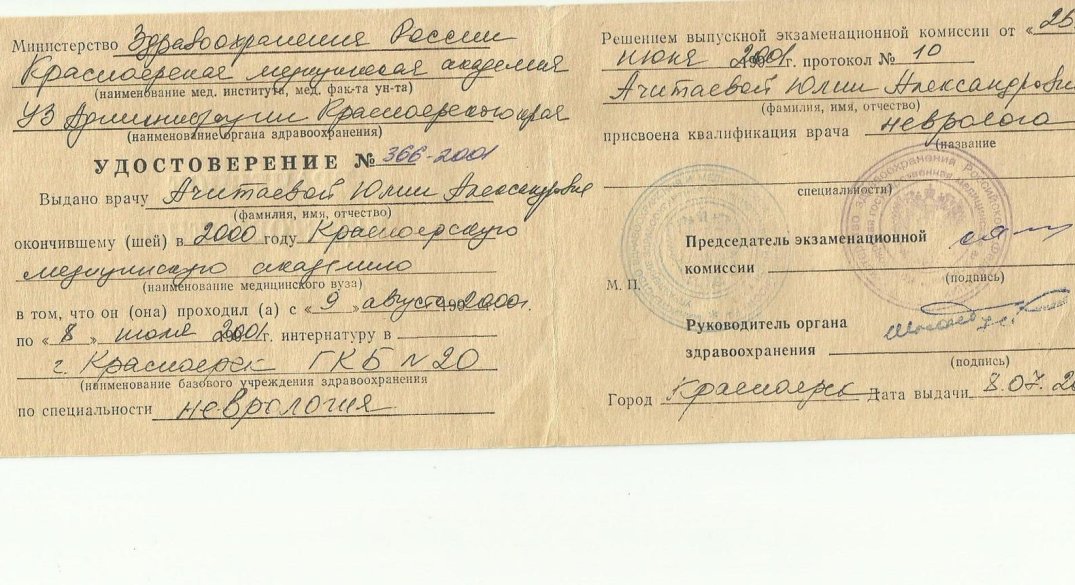 Министерство Здравоохранения России
Красноярская медицинская академия
(наименование мед. института, мед. фак-та ун-та)
УЗ Администрации Красноярского края
(наименование органа здравоохранения)
УДОСТОВЕРЕНИЕ № 366-2001
Выдано врачу Ачитаевой Юлии Александровне
(фамилия, имя, отчество)
окончившему (шей) в 2000 году Красноярскую
медицинскую академию
(наименование медицинского вуза)
в том, что он (она) проходил (а) с «9» августа 2000г.
по «8» июля 2001г. интернатуру в
г. Красноярск ГКБ №20
(наименование базового учреждения здравоохранения
по специальности неврология
Решением выпускной экзаменационной комиссии от «26
июня 2001г. протокол № 10
Ачитаевой Юлии Александровне
(фамилия, имя, отчество)
присвоена квалификация врача невролога
(название
специальности)
Председатель экзаменационной
комиссии
(подпись)
М. П.
Руководитель органа
здравоохранения
(подпись)
Город Красноярск Дата выдачи 8.07.20